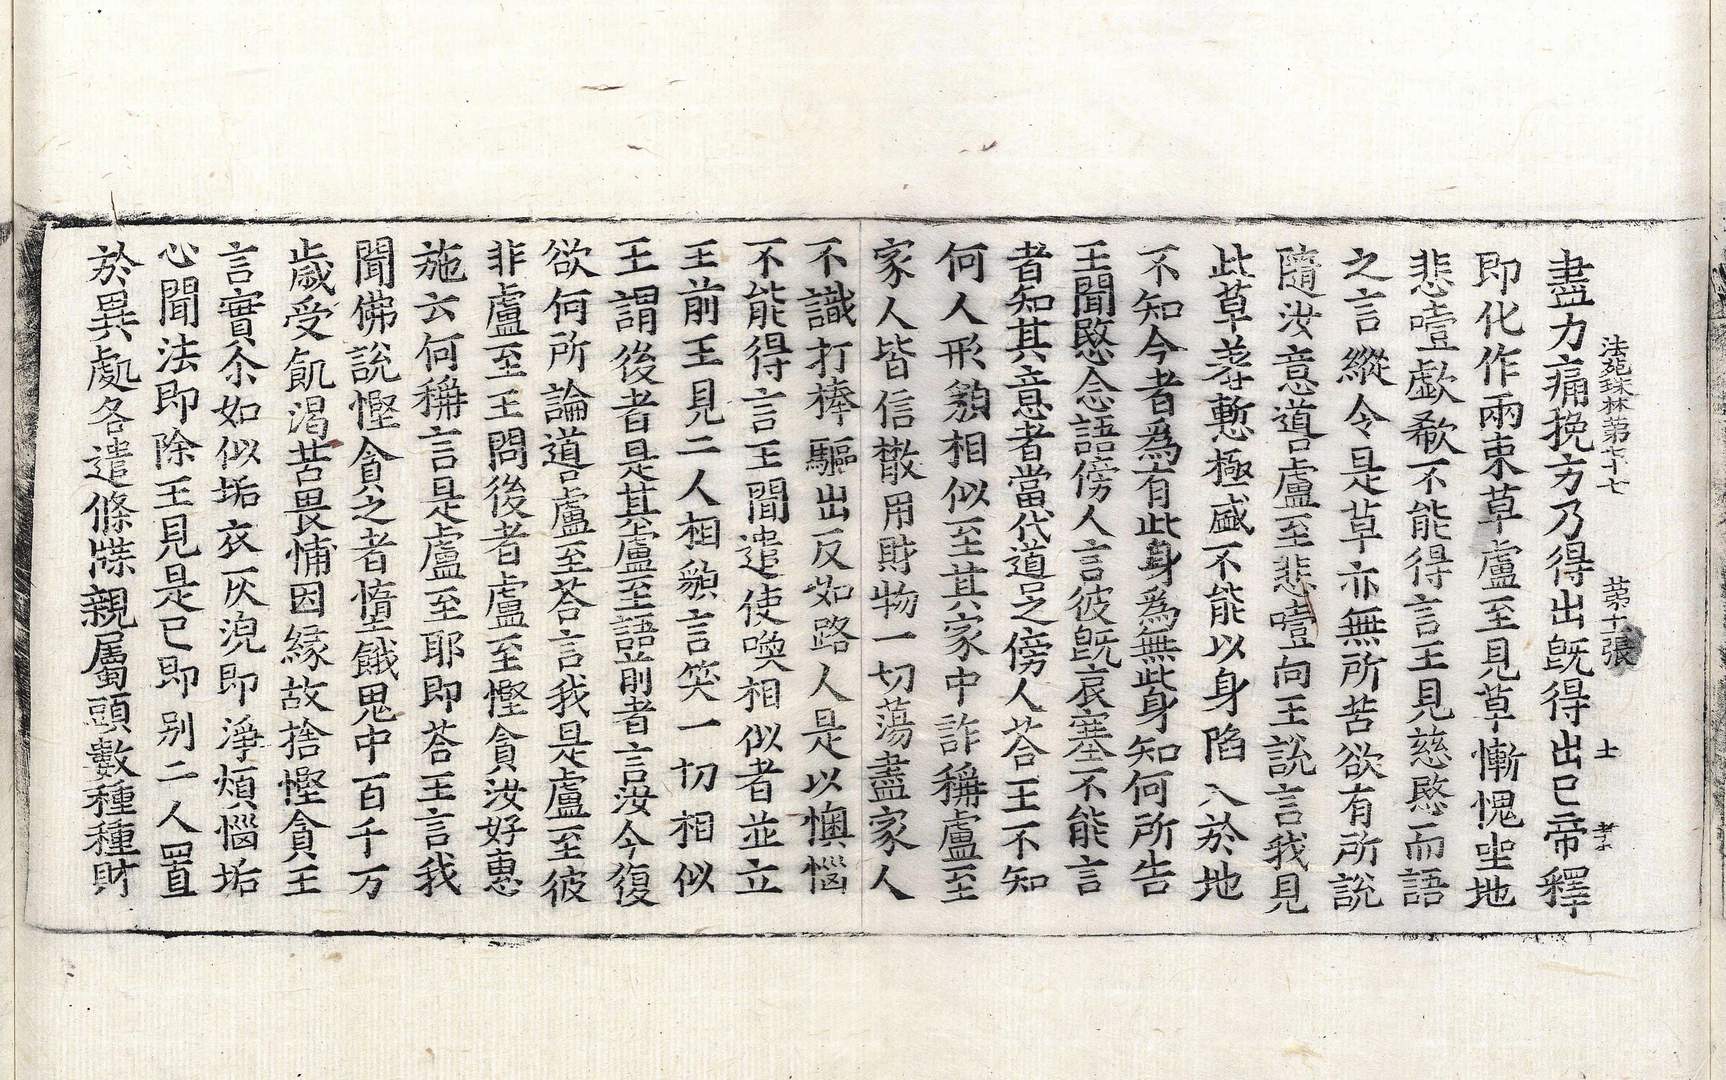 法苑珠林第七十七 第十張 士
盡力痛挽方乃得出旣得出已帝釋
即化作兩束草盧至見草慚愧坐地
悲噎歔欷不能得言王見慈愍而語
之言縱令是草亦無所苦欲有所說
隨汝意道盧至悲噎向王說言我見
此草羞慙極盛不能以身陷入於地
不知今者為有此身為無此身知何所告
王聞愍念語傍人言彼旣哀塞不能言
者知其意者當代道之傍人荅王不知
何人形貌相似至其家中詐稱盧至
家人皆信散用財物一切蕩盡家人
不識打棒驅出反如路人是以懊惱
不能得言王聞遣使喚相似者並立
王前王見二人相貌言笑一切相似
王謂後者是其盧至語前者言汝今復
欲何所論道盧至荅言我是盧至彼
非盧至王問後者盧至慳貪汝好惠
施云何稱言是盧至耶即荅王言我
聞佛說慳貪之者墮餓鬼中百千万
歲受飢渴苦畏怖因緣故捨慳貪王
言實尒如似垢衣灰浣即淨煩惱垢
心聞法即除王見是已即別二人置
於異處各遣條牒親屬頭數種種財